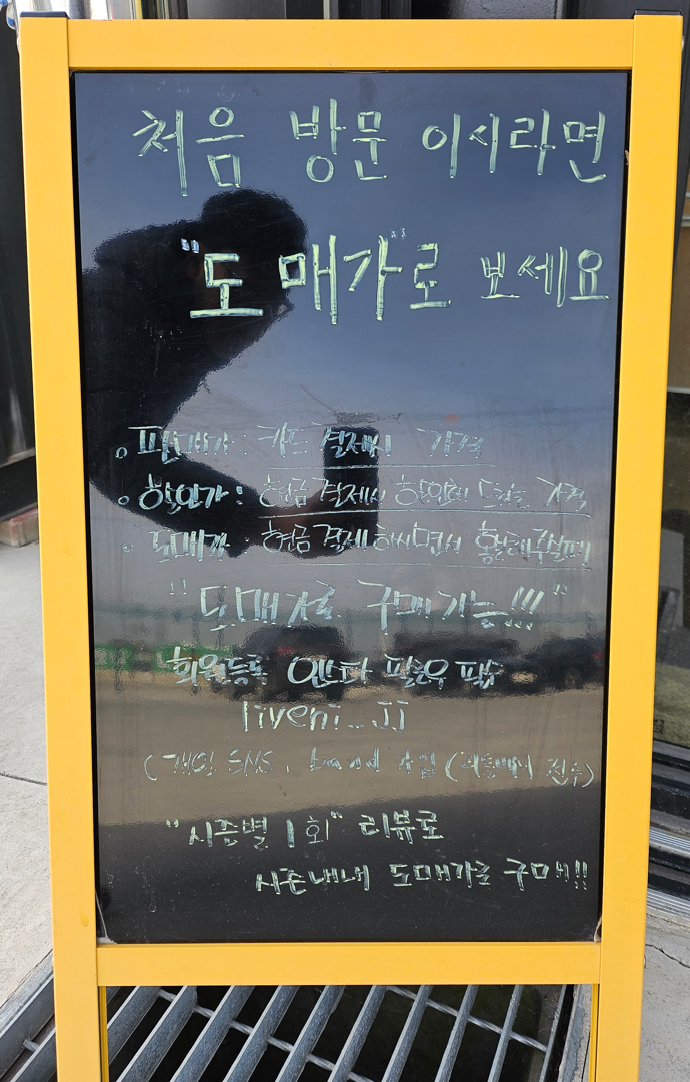 처음 방문 이시라면
"도매가"로 보세요
판매가 : 카드 결제시 가격
할인가 : 현금 결제시 할인해 드리는 가격
도매가 : 현금 결제 하시면서 활동해주실때
"도매가로 구매가능!!!"
회원등록 인스타 필로우 필수
liveni_JJ
(개인 SNS, 가입 (
"시즌별 1회" 리뷰로
시즌내내 도매가로 구매!!